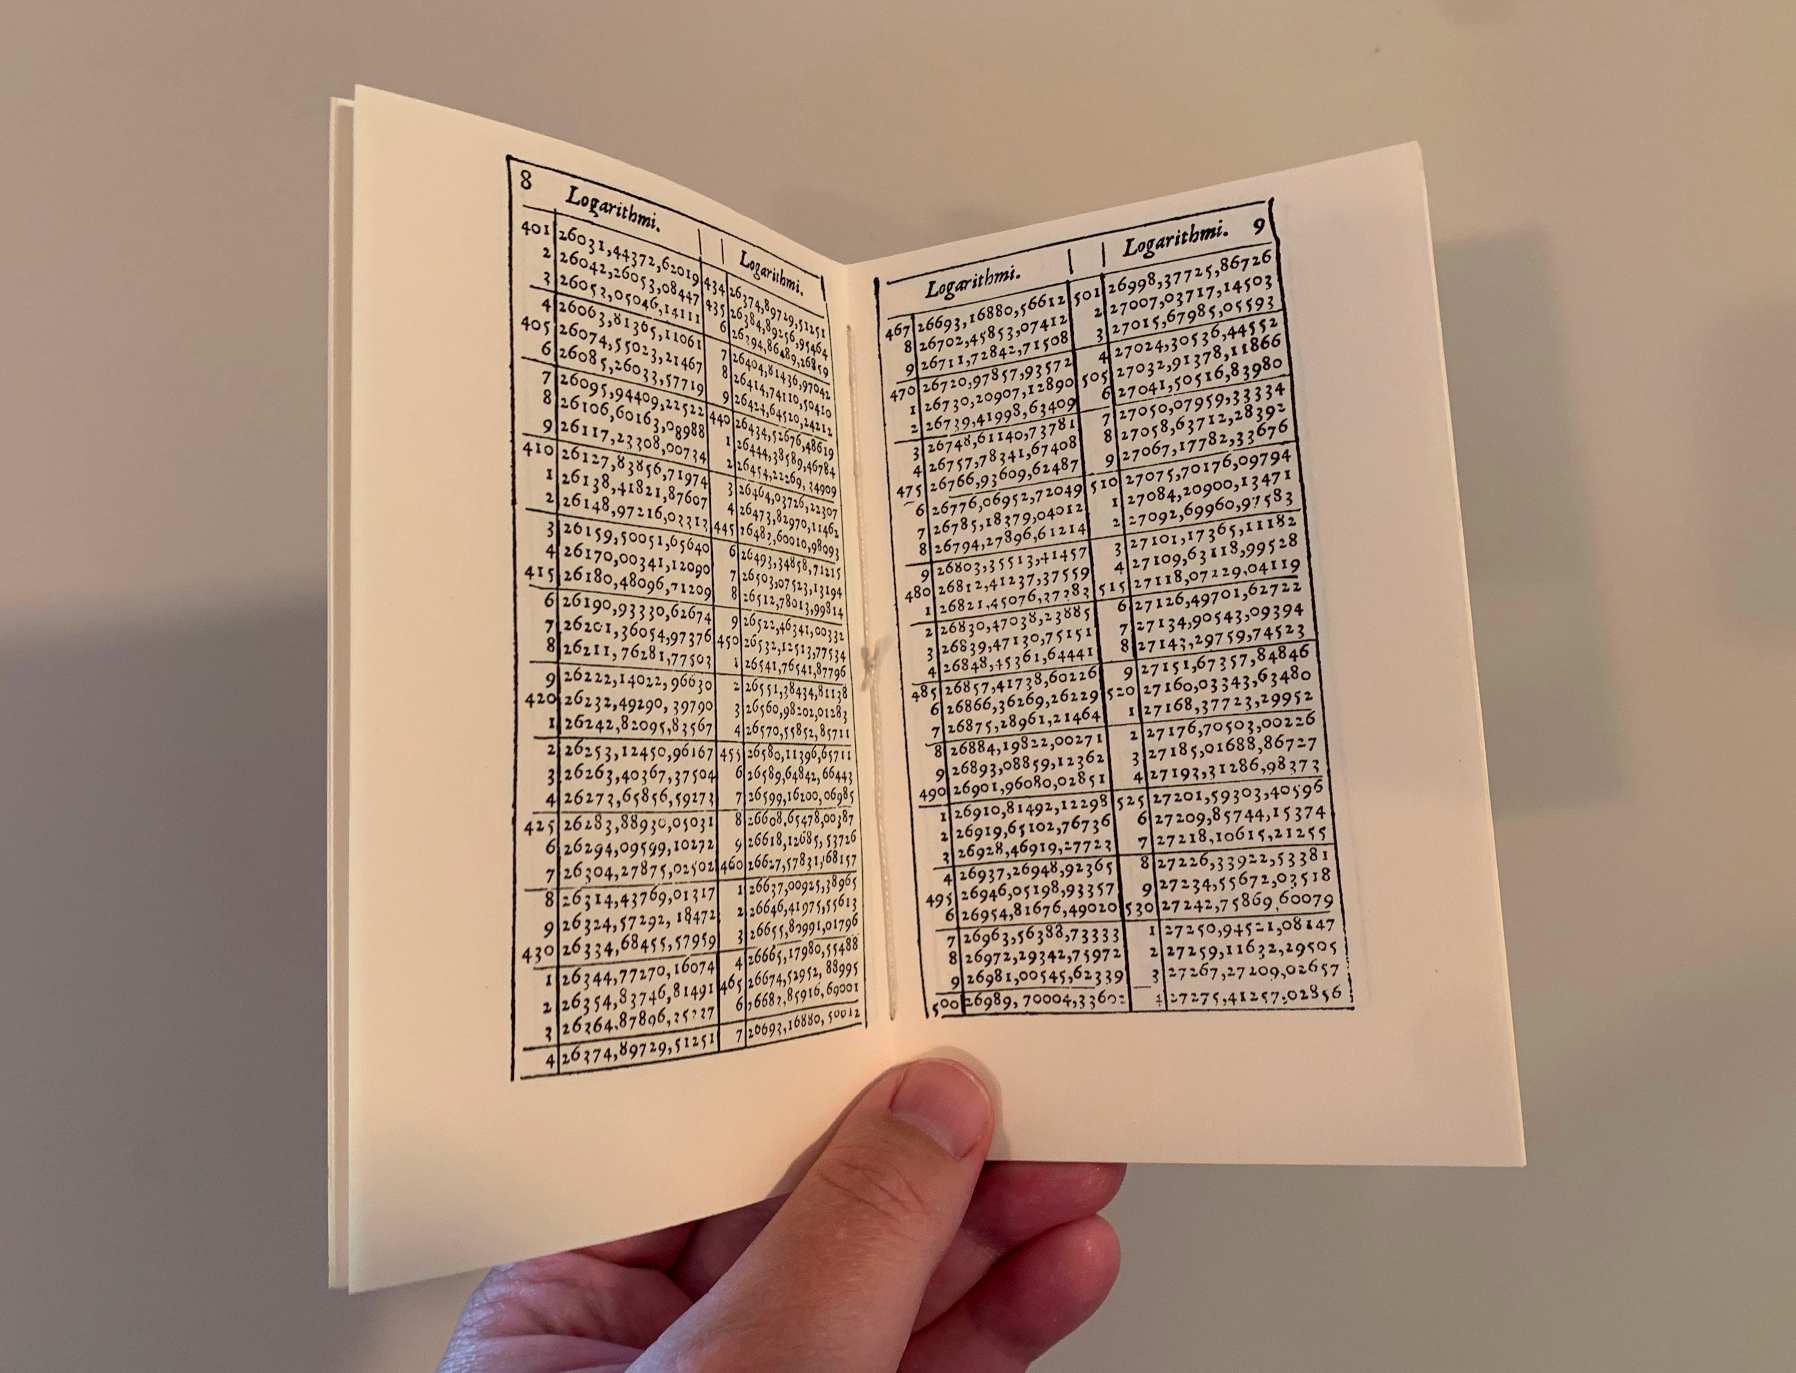 8 Logarithmi.
401 26031,44372,62019
2 26042,26053,08447
3 26053,05046,14111
4 26063,81365,11061
405 26074,55023,21467
6 26085,26033,57719
7 26095,94409,22522
8 26106,60163,08988
9 26117,23308,00734
410 26127,83856,71974
1 26138,41821,87607
2 26148,97216,03313
3 26159,50051,65640
4 26170,00341,12090
415 26180,48096,71209
6 26190,93330,62674
7 26201,36054,97376
8 26211,76281,77503
9 26222,14022,96630
420 26232,49290,39790
1 26242,82095,83567
2 26253,12450,96167
3 26263,40367,37504
4 26273,65856,59273
425 26283,88930,05031
6 26294,09599,10272
7 26304,27875,02502
8 26314,43769,01317
9 26324,57292,18472
430 26334,68455,57959
1 26344,77270,16074
2 26354,83746,81491
3 26364,87896,35337
4 26374,89729,51251
Logarithmi.
434 26374,89729,51251
435 26384,89256,95464
6 26394,86489,26859
7 26404,81436,97042
8 26414,74110,50410
9 26424,64520,24212
440 26434,52676,48619
1 26444,38589,46784
2 26454,22269,34909
3 26464,03726,22307
4 26473,82970,11462
445 26483,60010,98093
6 26493,34858,71215
7 26503,07523,13194
8 26512,78013,99814
9 26522,46341,00332
450 26532,12513,77534
1 26541,76541,87796
2 26551,38434,81138
3 26560,98202,01283
4 26570,55852,85711
455 26580,11396,65711
6 26589,64842,66443
7 26599,16200,06985
8 26608,65478,00387
9 26618,12685,53726
460 26627,57831,68157
1 26637,00925,38965
2 26646,41975,55613
3 26655,80991,01796
4 26665,17980,55488
465 26674,52952,88995
6 26683,85916,69001
7 26693,16880,56612
Logarithmi.
467 26693,16880,56612
8 26702,45853,07412
9 26711,72842,71508
470 26720,97857,93572
1 26730,20907,12890
2 26739,41998,63409
3 26748,61140,73781
4 26757,78341,67408
475 26766,93609,62487
6 26776,06952,72049
7 26785,18379,04012
8 26794,27896,61214
9 26803,35513,41457
480 26812,41237,37559
1 26821,45076,37383
2 26830,47038,23885
3 26839,47130,75151
4 26848,45361,64441
485 26857,41738,60226
6 26866,36269,26229
7 26875,28961,21464
8 26884,19822,00271
9 26893,08859,12362
490 26901,96080,02851
1 26910,81492,12298
2 26919,65102,76736
3 26928,46919,27723
4 26937,26948,92365
495 26946,05198,93357
6 26954,81676,49020
7 26963,56388,73333
8 26972,29342,75972
9 26981,00545,62339
500 26989,70004,33602
Logarithmi. 9
501 26998,37725,86726
2 27007,03717,14503
3 27015,67985,05593
4 27024,30536,44552
505 27032,91378,11866
6 27041,50516,83980
7 27050,07959,33334
8 27058,63712,28392
9 27067,17782,33676
510 27075,70176,09794
1 27084,20900,13471
2 27092,69960,97583
3 27101,17365,11182
4 27109,63118,99528
515 27118,07229,04119
6 27126,49701,62722
7 27134,90543,09394
8 27143,29759,74523
9 27151,67357,84846
520 27160,03343,63480
1 27168,37723,29952
2 27176,70503,00226
3 27185,01688,86727
4 27193,31286,98373
525 27201,59303,40596
6 27209,85744,15374
7 27218,10615,21255
8 27226,33922,53381
9 27234,55672,03518
530 27242,75869,60079
1 27250,94521,08147
2 27259,11632,29505
3 27267,27209,02657
4 27275,41257,02856